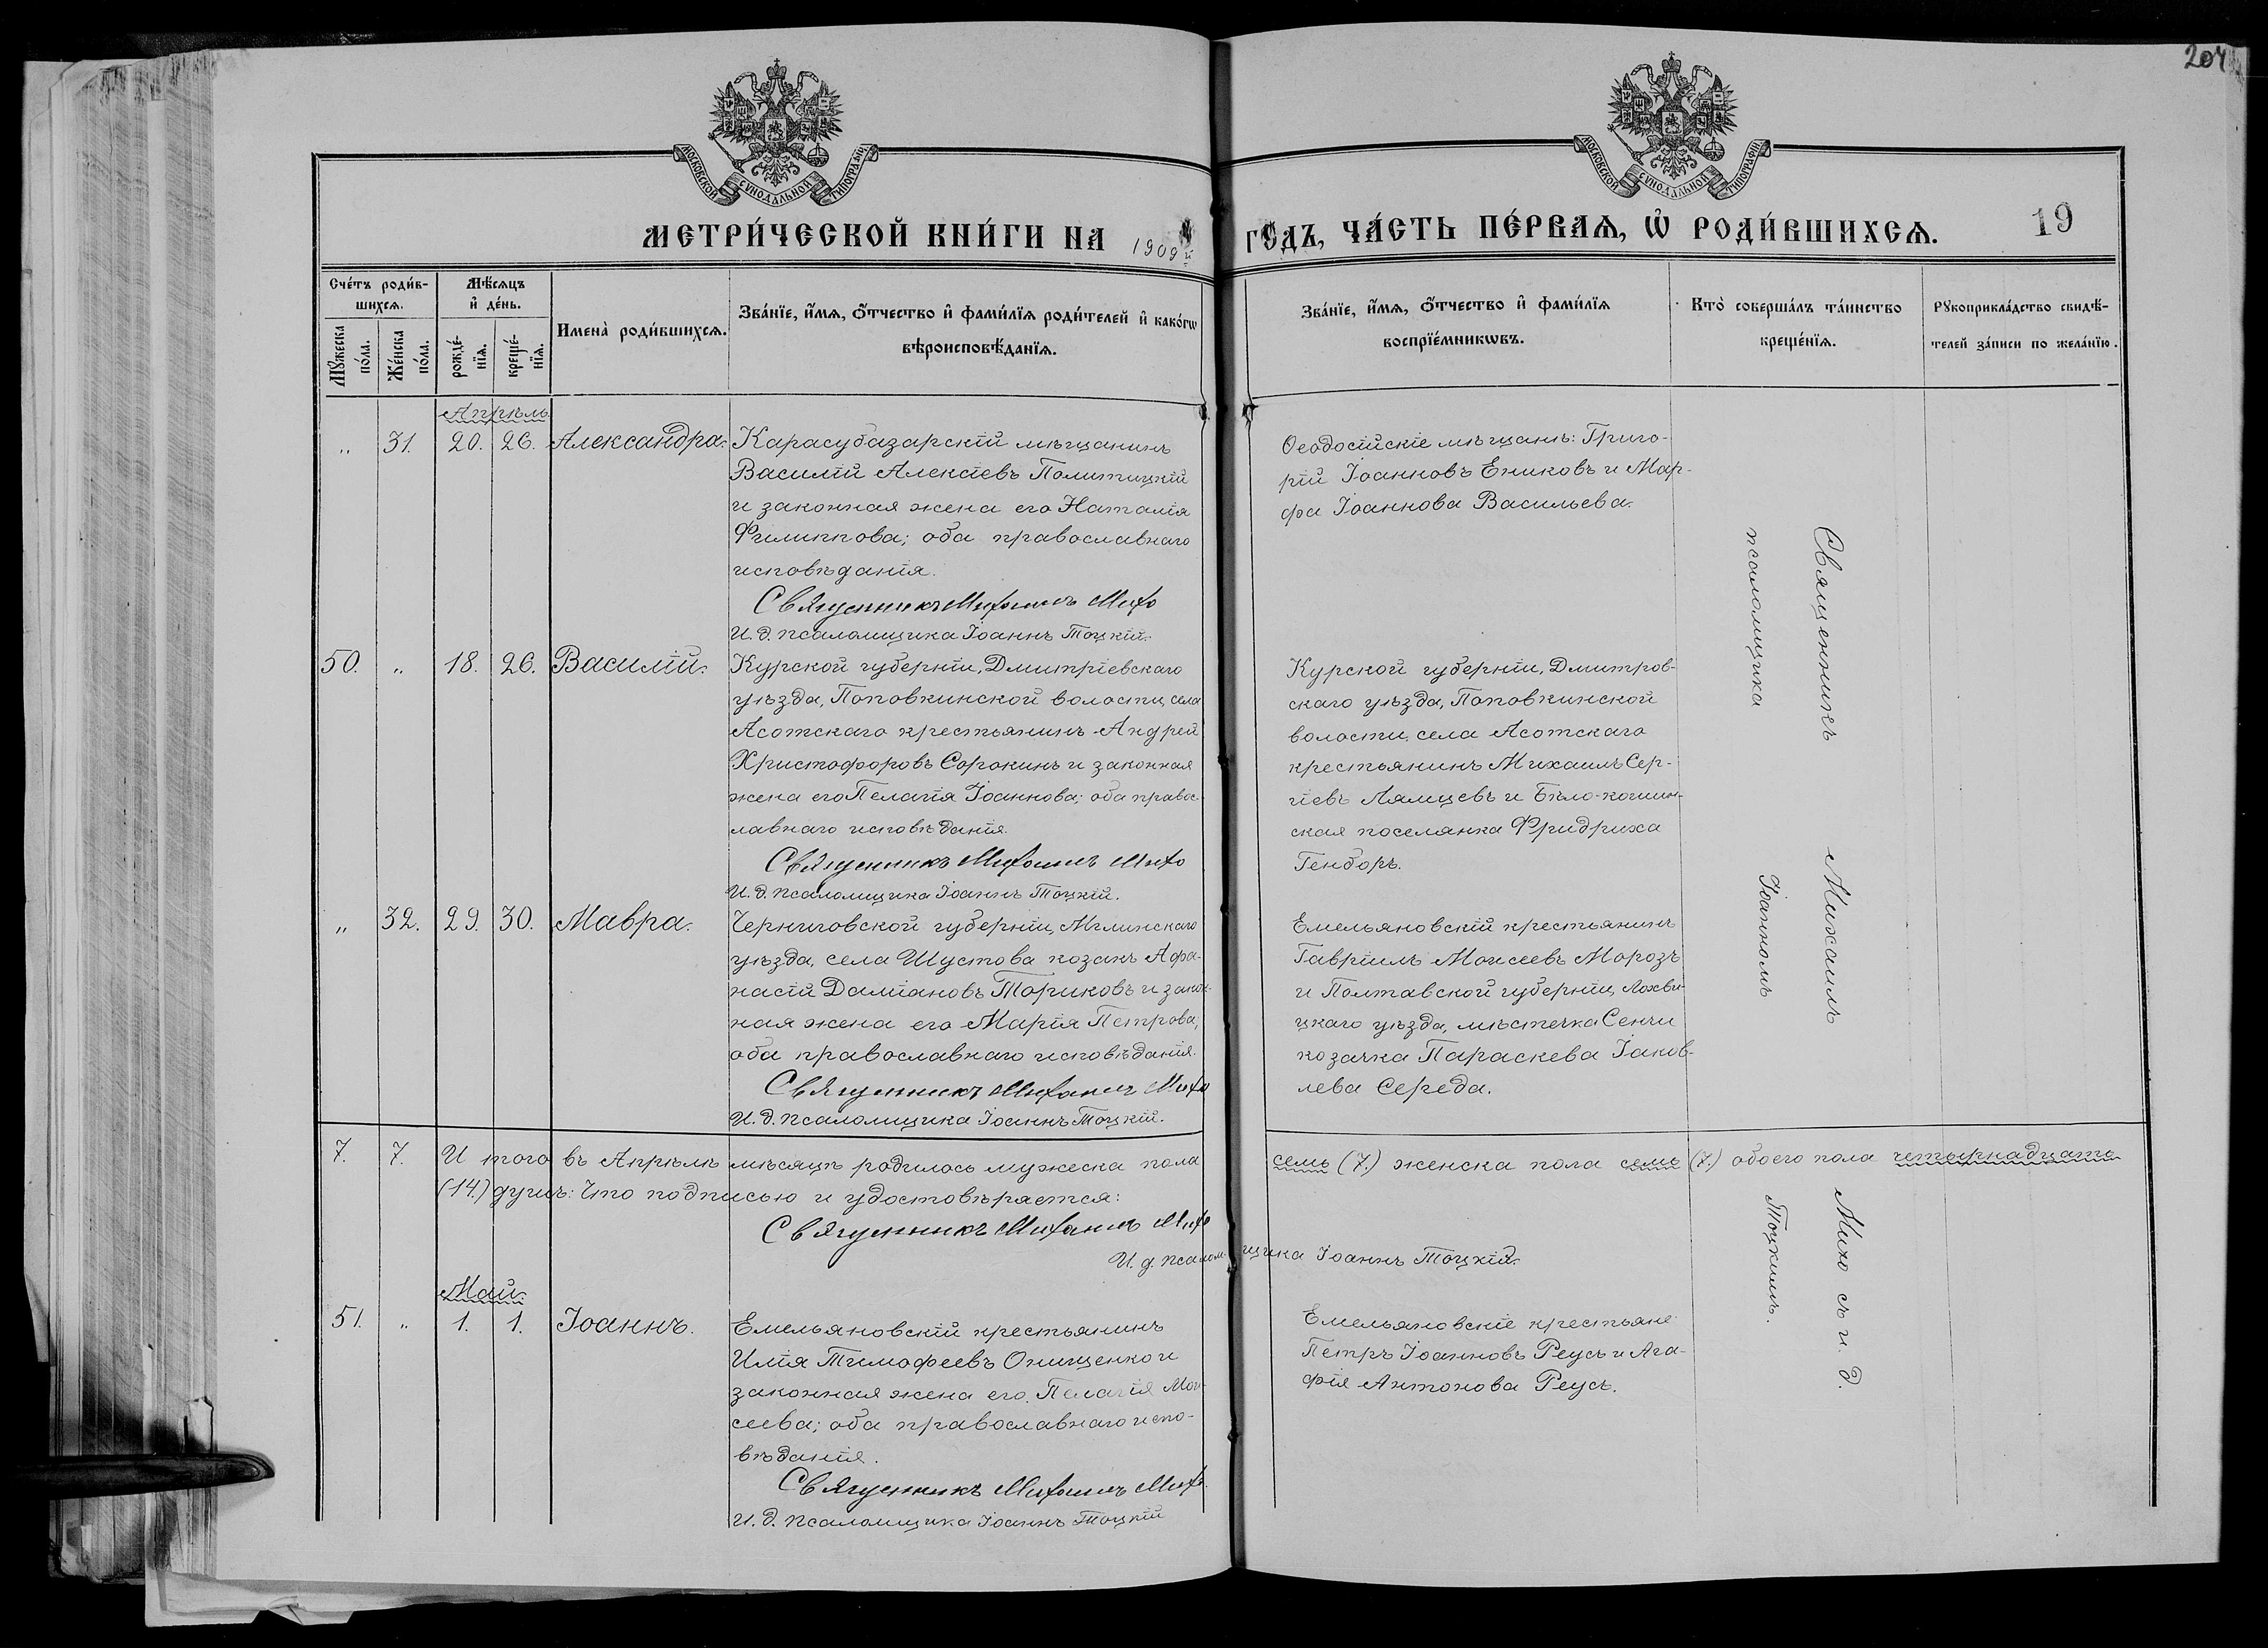 204
МОСКОВСКОЙ СУНОДАЛЬНОЙ ТИПОГРАФИИ
МОСКОВСКОЙ СУНОДАЛЬНОЙ ТИПОГРАФИИ
МЕТРИ́ЧЕСКОЙ КНИ́ГИ НА 1909й ГО́ДЪ, ЧА́СТЬ ПЕ́РВАѦ, Ѽ РОДИ́ВШИХСѦ.
19
Сче́тъ роди́в-
шихсѧ.
Мѣ́сѧцъ
и҆ де́нь.
Мꙋ́жеска
по́ла.
Же́нска
по́ла.
рожде́-
нїѧ.
креще́-
нїѧ.
Имена̀ роди́вшихсѧ.
Зва́нїе, и҆́мѧ, ѻ҆́тчество и҆ фами́лїѧ роди́телей и҆ како́гѡ
вѣроисповѣ́данїѧ.
Зва́нїе, и҆́мѧ, ѻ҆́тчество и҆ фами́лїѧ
воспрїе́мникѡвъ.
Кто̀ соверша́лъ та́инство
креще́нїѧ.
Рꙋкоприкла́дство свидѣ́-
телей за́писи по жела́нїю.
Апрѣль
„ 31. 20. 26. Александра. Карасубазарскій мѣщанинъ
Василій Алексіевъ Политицкій
и законная жена его Наталія
Филиппова; оба православнаго
исповѣданія.
Священникъ Михаилъ Михо
И. д. псаломщика Іоаннъ Тоцкій.
Ѳеодосійскіе мѣщанѣ: Григо-
рій Іоанновъ Ениковъ и Мар-
фа Іоаннова Васильева.
50. „ 18. 26. Василій. Курской губерніи, Дмитріевскаго
уѣзда, Поповкинской волости, села
Асотскаго крестьянинъ Андрей
Христофоровъ Сорокинъ и законная
жена его Пелагія Іоаннова; оба правос-
лавнаго исповѣданія.
Священникъ Михаилъ Михо
И. д. псаломщика Іоаннъ Тоцкій.
Курской губерніи, Дмитров-
скаго уѣзда, Поповкинской
волости, села Асотскаго
крестьянинъ Михаилъ Сер-
гіевъ Лямцевъ и Бѣло-
ская поселянка Фридриха
Гендоръ.
„ 32. 29. 30. Мавра. Черниговской губерніи, Мглинскаго
уѣзда, села Шустова козакъ Афа-
насій Даміановъ Ториковъ и закон-
ная жена его Марія Петрова;
оба православнаго исповѣданія.
Священникъ Михаилъ Михо
И. д. псаломщика Іоаннъ Тоцкій.
Емельяновскій крестьянинъ
Гавріилъ Моисеевъ Морозъ
и Полтавской губерніи, Лохви-
цкаго уѣзда, мѣстечка Сенчи
козачка Параскева Іаков-
лева Середа.
7. 7. И того въ Апрѣлѣ мѣсяцѣ родилось мужеска пола семь (7.) женска пола семь (7.) обоего пола четырнадцать
(14.) душъ: Что подписью и удостовѣряется:
Священникъ Михаилъ Михо
И. д. псаломщика Іоаннъ Тоцкій.
Май.
51. „ 1. 1. Іоаннъ. Емельяновскій крестьянинъ
Илія Тимофеевъ Онищенко и
законная жена его Пелагія Мои-
сеева; оба православнаго испо-
вѣданія.
Священникъ Михаилъ Михо
И. д. псаломщика Іоаннъ Тоцкій
Емельяновскіе крестьяне
Петръ Іоанновъ Реусъ и Ага-
фія Антонова Реусъ.
Священникъ Михаилъ Михо съ и. д.
псаломщика Іоанномъ Тоцкимъ.